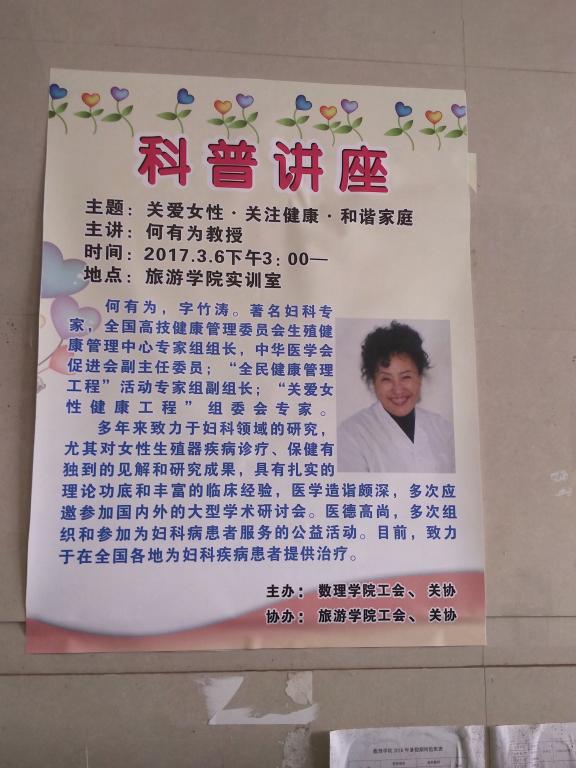 科普讲座
主题：关爱女性·关注健康·和谐家庭
主讲：何有为教授
时间：2017.3.6下午3：00—
地点：旅游学院实训室
何有为，字竹涛。著名妇科专
家，全国高技健康管理委员会生殖健
康管理中心专家组组长，中华医学会
促进会副主任委员；“全民健康管理
工程”活动专家组副组长；“关爱女
性健康工程”组委会专家。
多年来致力于妇科领域的研究，
尤其对女性生殖器疾病诊疗、保健有
独到的见解和研究成果，具有扎实的
理论功底和丰富的临床经验，医学造诣颇深，多次应
邀参加国内外的大型学术研讨会。医德高尚，多次组
织和参加为妇科病患者服务的公益活动。目前，致力
于在全国各地为妇科疾病患者提供治疗。
主办：数理学院工会、关协
协办：旅游学院工会、关协